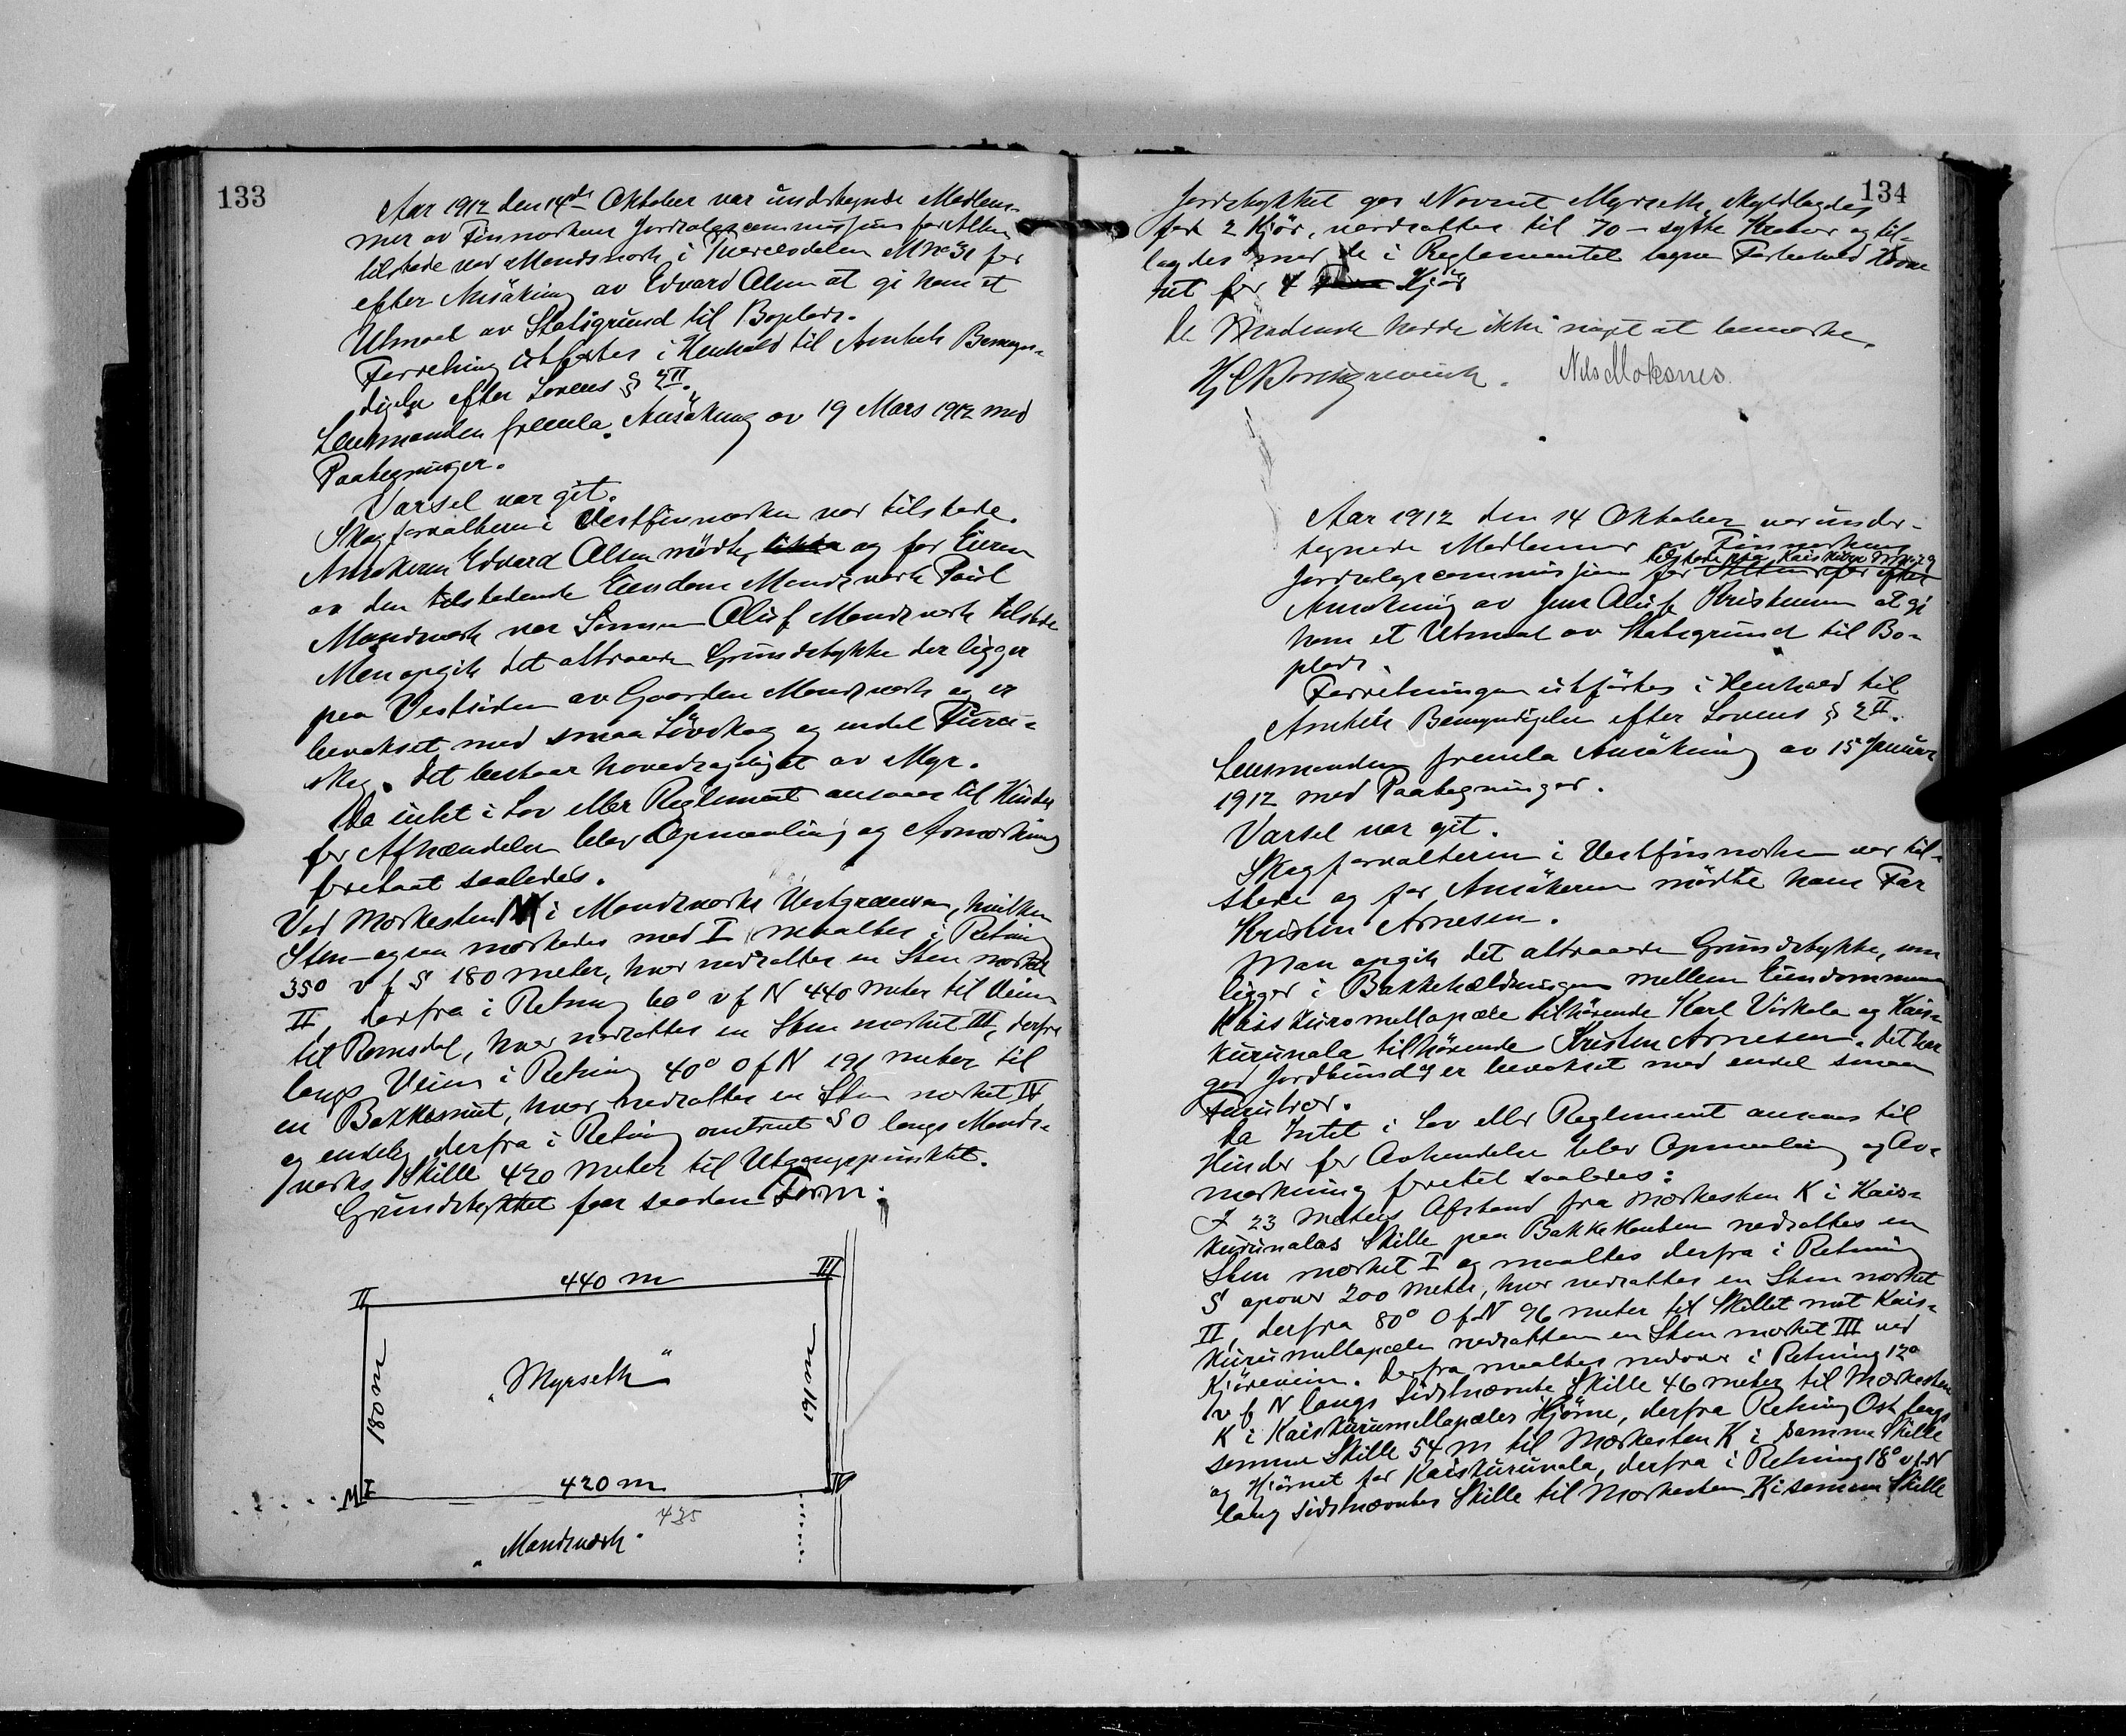 133
Aar 1912 den 14de Oktober var undertegnede Medlem-
mer av Finmarkens Jordsalgscommission for Alten
tilstede ved Mandsverk i Tverelvdalen M No 31 for
efter Ansökning av Edvard Olsen at gi ham et
Utmaal av Statsgrund til Boplads.
Forretning utförtes i Henhold til Amtets Bemyn-
digelse efter Lovens § 2 II.
Lensmanden fremla Ansökning av 19 Mars 1912 med
Paategninger.
Varsel var git.
Skogforvalteren i Vestfinmarken var tilstede.
Ansökeren Edvard Olsen mödte og for Eieren
av den tilstötende Eiendom Mandsverk Poul
Mandsverk var Sönnen Oluf Mandsverk tilstede
Man opgik det attraaede Grundstykke der ligger
paa Vestsiden av Gaarden Mandsverk og er
bevokset med smaa Lövskog og endel Furu-
skog. Det bestaar hovedsagelig av Myr.
Da intet i Lov eller Reglement ansaaes til Hinder
for Afhændelse blev Opmaaling og Avmerkning
foretaat saaledes.
Ved Merkesten M i Mandsverks Vestgrænse, hvilken
Sten ogsaa merkedes med I maaltes i Retning
350 v f S 180 meter, hvor nedsattes en Sten merket
II derfra i Retning 60° v f N 440 meter til Veien
til Romsdal, hvor nedsattes en Sten merket III, derfra
langs Veien i Retning 40° O f N 191 meter til
en Bakkesnut, hvor nedsattes en Sten merket IV
og endelig derfra i Retning omtrent SO langs Mands-
verks Skille 420 meter til Utgangspunktet.
Grundstykket faar saadan Form:
II 440 m III
180 m „Myrseth“ 191 m
M I 420 m IV
435
„Mandsverk“
134
Jordstykket gas Navnet Myrseth, skyldlagdes
for 2 Kjör, værdsattes til 70 - sytti Kroner og til-
lagdes med de i Reglementet tagne Forbehold Havne
ret for 4 Kjör
De Mödende hadde ikke noget at bemerke.
Hj C Borchgrevink. Nils Moksnes.
Aar 1912 den 14 Oktober var under-
tegnede Medlemmer av Finmarkens
tilstede paa Kaiskuru M No 29
Jordsalgscommission for Alten for efter
Ansökning av Jens Oluf Kristensen at gi
ham et Utmaal av Statsgrund til Bo-
plads.
Forretningen utförtes i Henhold til
Amtets Bemyndigelse efter Lovens § 2 II.
Lensmanden fremla Ansökning av 15 Januar
1912 med Paategninger.
Varsel var git.
Skogforvalteren i Vestfinmarken var til-
stede og for Ansökeren mödte hans Far
Kristen Arnesen.
Man opgik det attraaede Grundstykke, som
ligger i Bakkehældningen mellem Eiendommene
Kaiskuromellapæle tilhörende Karl Virkola og Kais-
kurunala tilhörende Kristen Arnesen. Det har
god Jordbund og er bevokset med endel smaa
Furutrær.
Da Intet i Lov eller Reglement ansaaes til
Hinder for Avhendelse blev Opmaaling og Av-
merkning foretat saaledes:
I 23 meters Afstand fra Merkesten K i Kais-
kurunalas Skille paa Bakkekanten nedsattes en
Sten merket I og maaltes derfra i Retning
S opover 200 meter, hvor nedsattes en Sten merket
II, derfra 80° O f N 96 meter til Skillet mot Kais-
kurumellapæle nedsattes en Sten merket III ved
Kjöreveien. Derfra maaltes nedover i Retning 12°
v f N langs sidstnævnte Skille 46 meter til Merkesten
K i Kaiskurumellapæles Hjörne, derfra Retning Ost langs
samme Skille 54 m til Merkesten K i samme Skille
og Hjörnet for Kaiskurunala, derfra i Retning 18° v f N
lang sidstnævntes Skille til Merkesten K i samme Skille